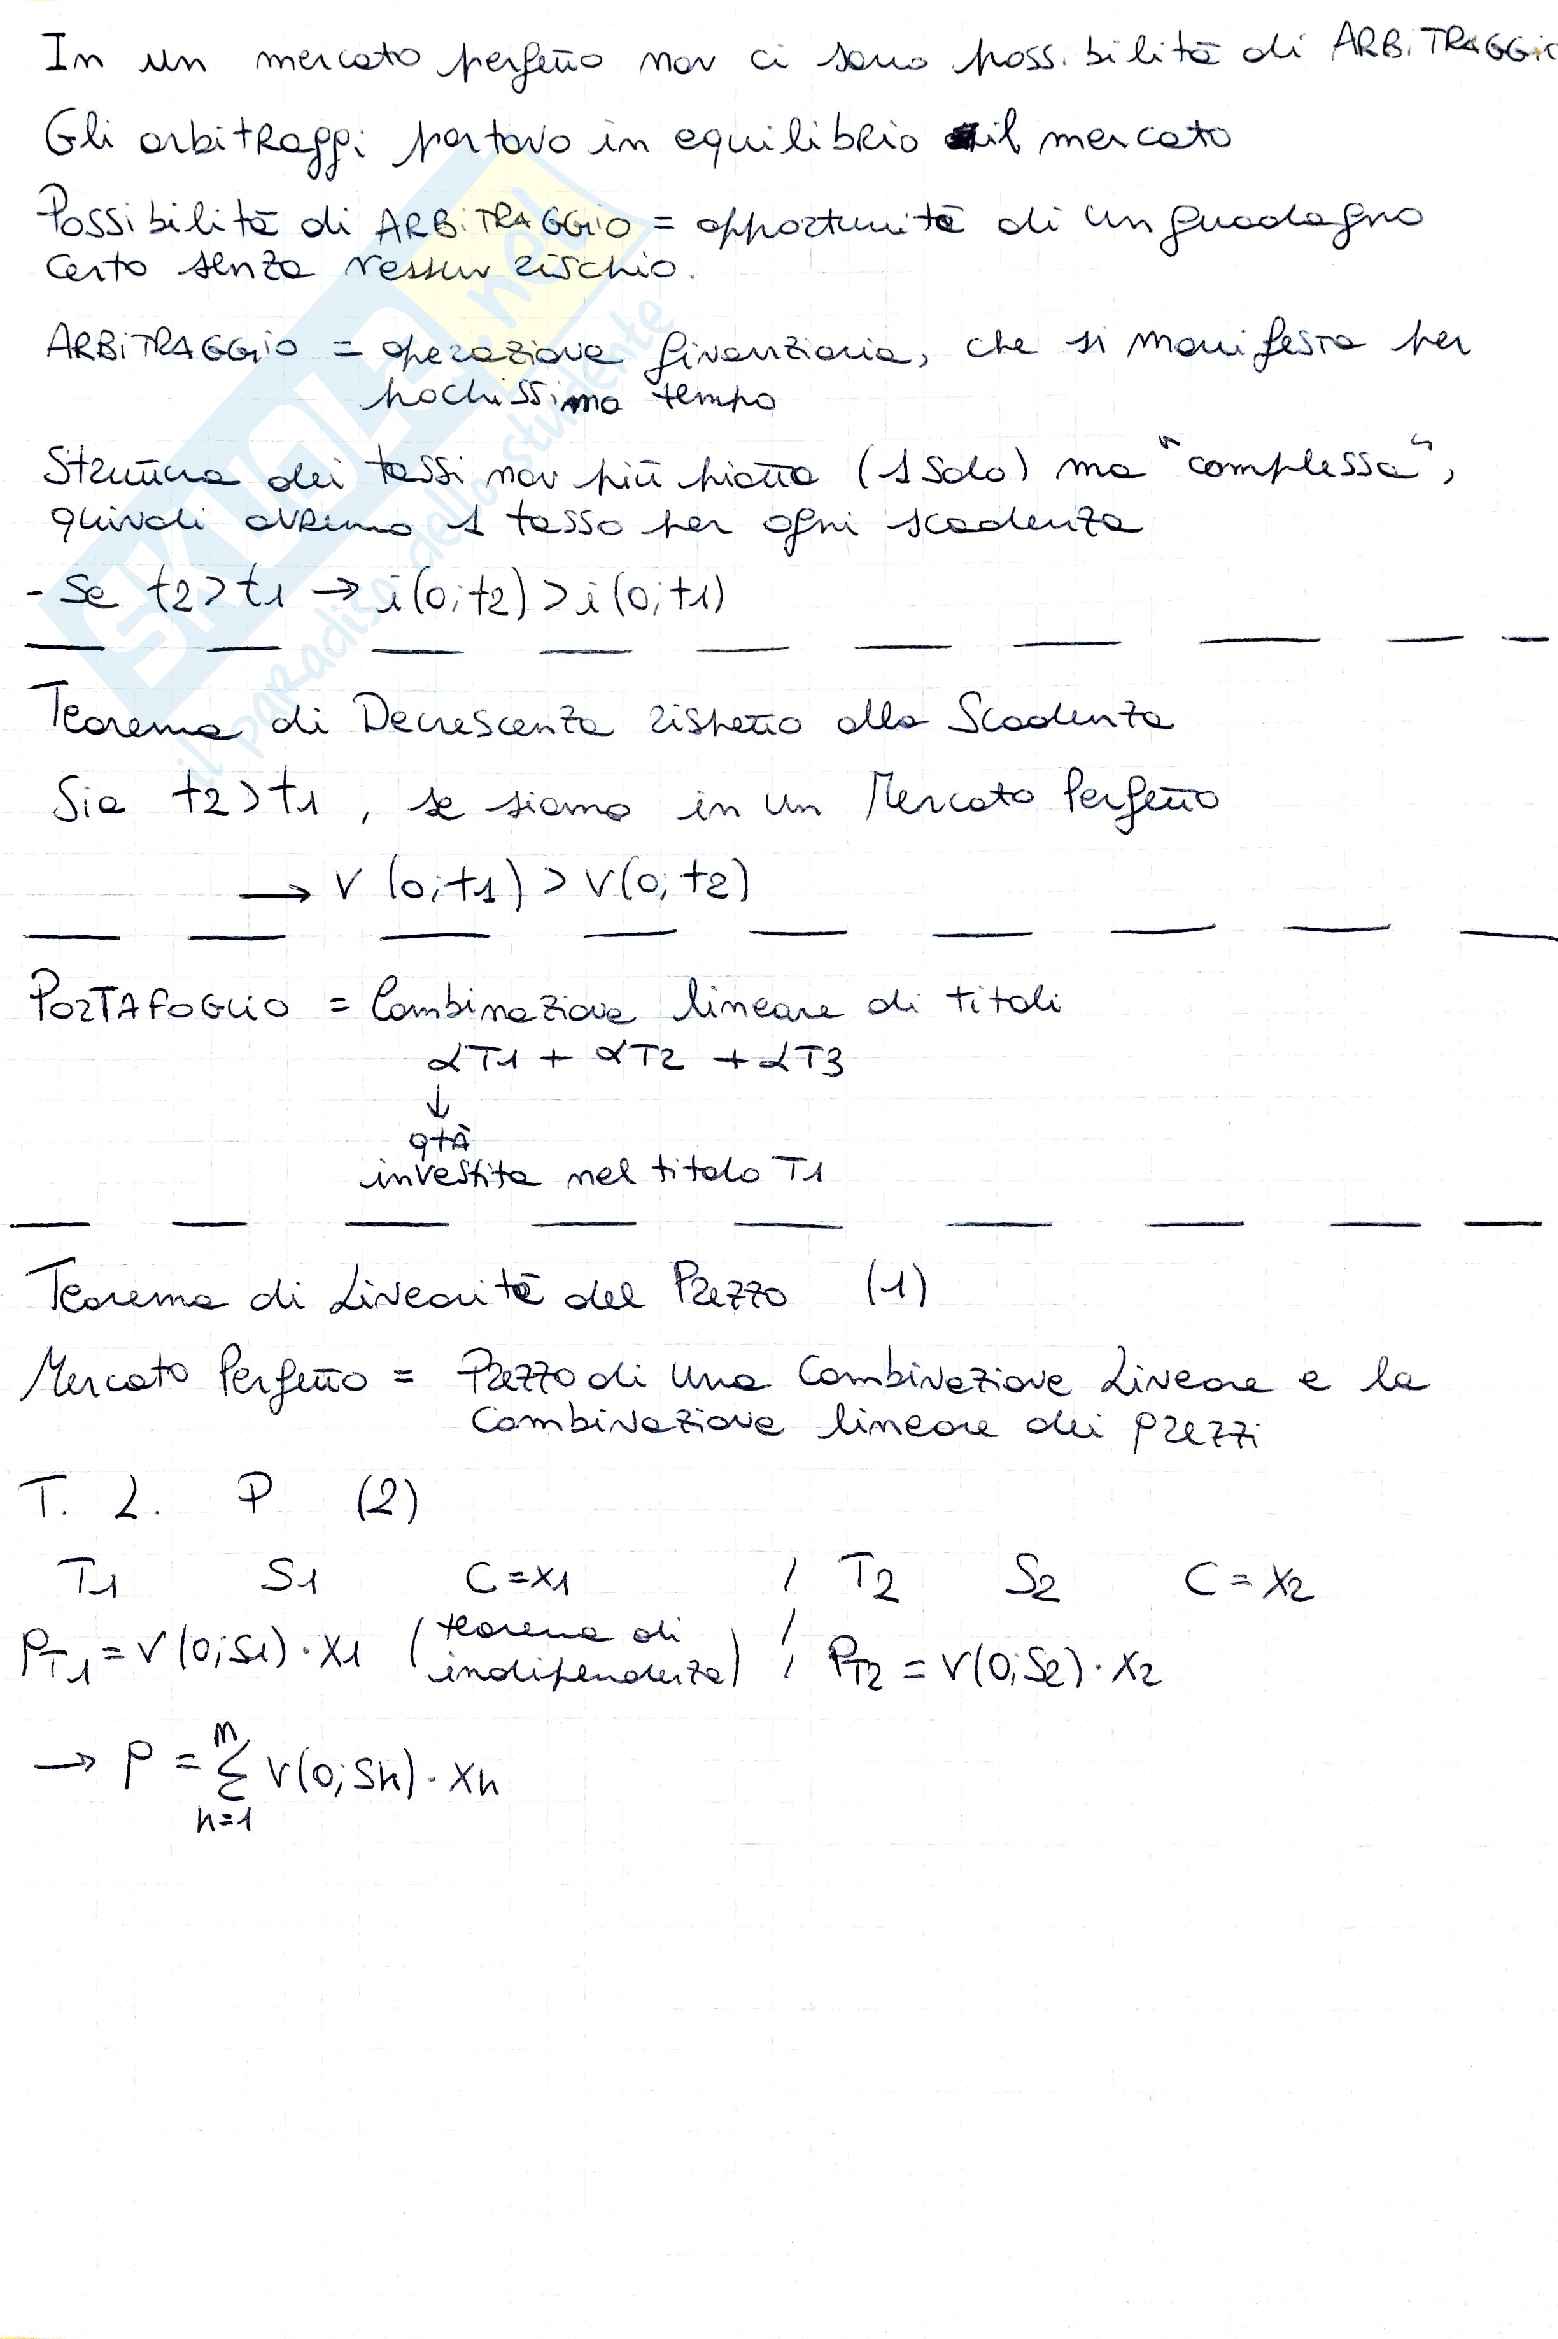 In un mercato perfetto non ci sono possibilità di ARBITRAGGIO
Gli arbitraggi portano in equilibrio il mercato
Possibilità di ARBITRAGGIO = opportunità di un guadagno
certo senza nessun rischio.
ARBITRAGGIO = operazione finanziaria, che si manifesta per
pochissimo tempo
Struttura dei tassi non più piatta (1 solo) ma "complessa",
quindi avremo 1 tasso per ogni scadenza
- Se t2>t1 → i(0;t2) > i(0;t1)
Teorema di Decrescenza rispetto alla Scadenza
Sia t2>t1, se siamo in un Mercato Perfetto
→ V(0;t1) > V(0;t2)
PORTAFOGLIO = Combinazione lineare di titoli
αT1 + αT2 + αT3
↓
qtà
investita nel titolo T1
Teorema di Linearità del Prezzo (1)
Mercato Perfetto = Prezzo di una Combinazione Lineare e la
combinazione lineare dei prezzi
T. L. P (2)
T1 S1 C=x1 / T2 S2 C=x2
PT1 = V(0;S1)·X1 (teorema di indipendenza) / PT2 = V(0;S2)·X2
→ P = Σ V(0;Sh)·Xh
h=1
SKUOLA.net
il paradiso dello studente